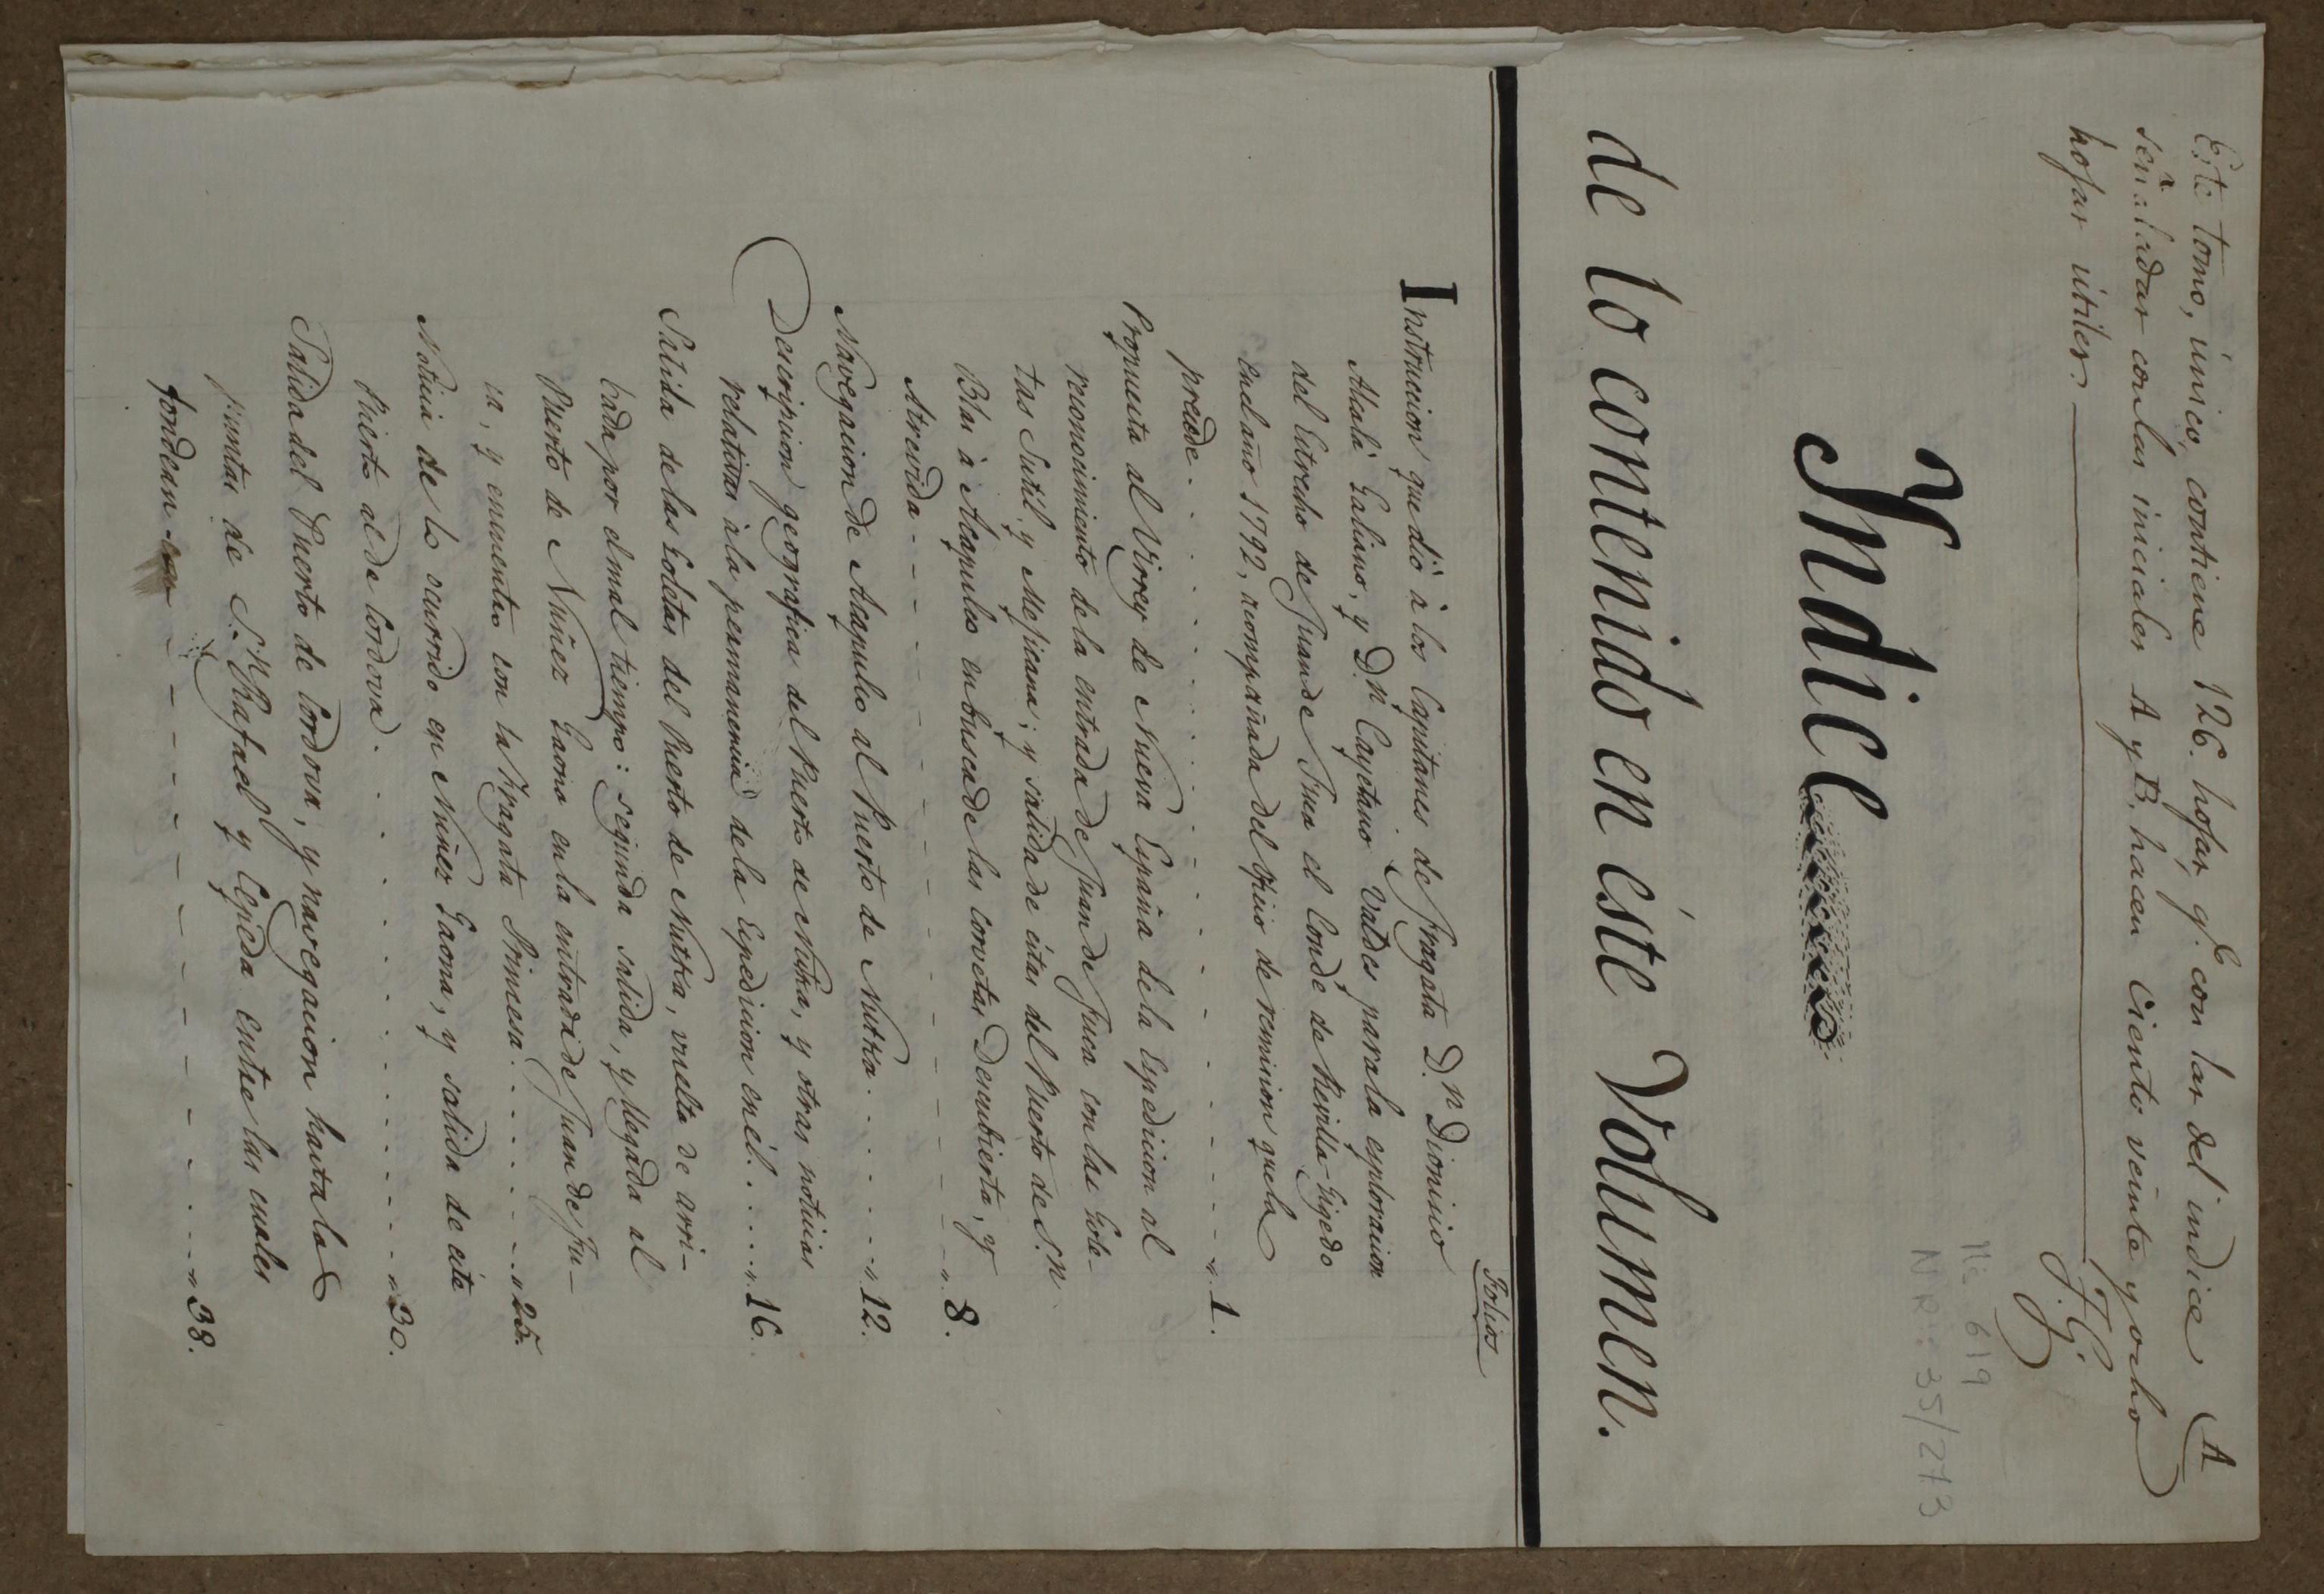 Este tomo, único, contiene 126. hojas, q.e con las del indice A
señaladas con las iniciales A y B. hacen ciento veinte y ocho
hojas utiles.
Ms 619
N.R.: 35/273
Indice
de lo contenido en éste Volumen.
Folios
Instruccion que dió à los Capitanes de Fragata D.n Dionisio
Alcalá Galiano, y D.n Cayetano Valdes para la esploracion
del Estrecho de Juan de Fuca el Conde de Revilla-Gigedo
en el año 1792, acompañada del Oficio de remision que la
precede. 1.
Propuesta al Virrey de Nueva España de la Espedicion al
reconocimiento de la entrada de Juan de Fuca con las Gole-
tas Sutíl, y Mejicana; y salida de éstas del Puerto de S.n
Blas à Acapulco en busca de las Corvetas Descubierta, y
Atrevida 8.
Navegacion de Acapulco al Puerto de Nutka 12.
Descripcion geografica del Puerto de Nutka, y otras noticias
relativas à la permanencia de la Espedicion en él 16.
Salida de las Goletas del Puerto de Nutka, vuelta de arri-
bada por el mal tiempo: segunda salida, y llegada al
Puerto de Nuñez Gaona en la entrada de Juan de Fu-
ca, y encuentro con la Fragata Princesa 25.
Noticia de lo ocurrido en Nuñez Gaona, y salida de este
Puerto al de Cordova 30.
Salida del Puerto de Cordova, y navegacion hasta las
puntas de S.n Rafael y Cepeda entre las cuales
fondean 38.